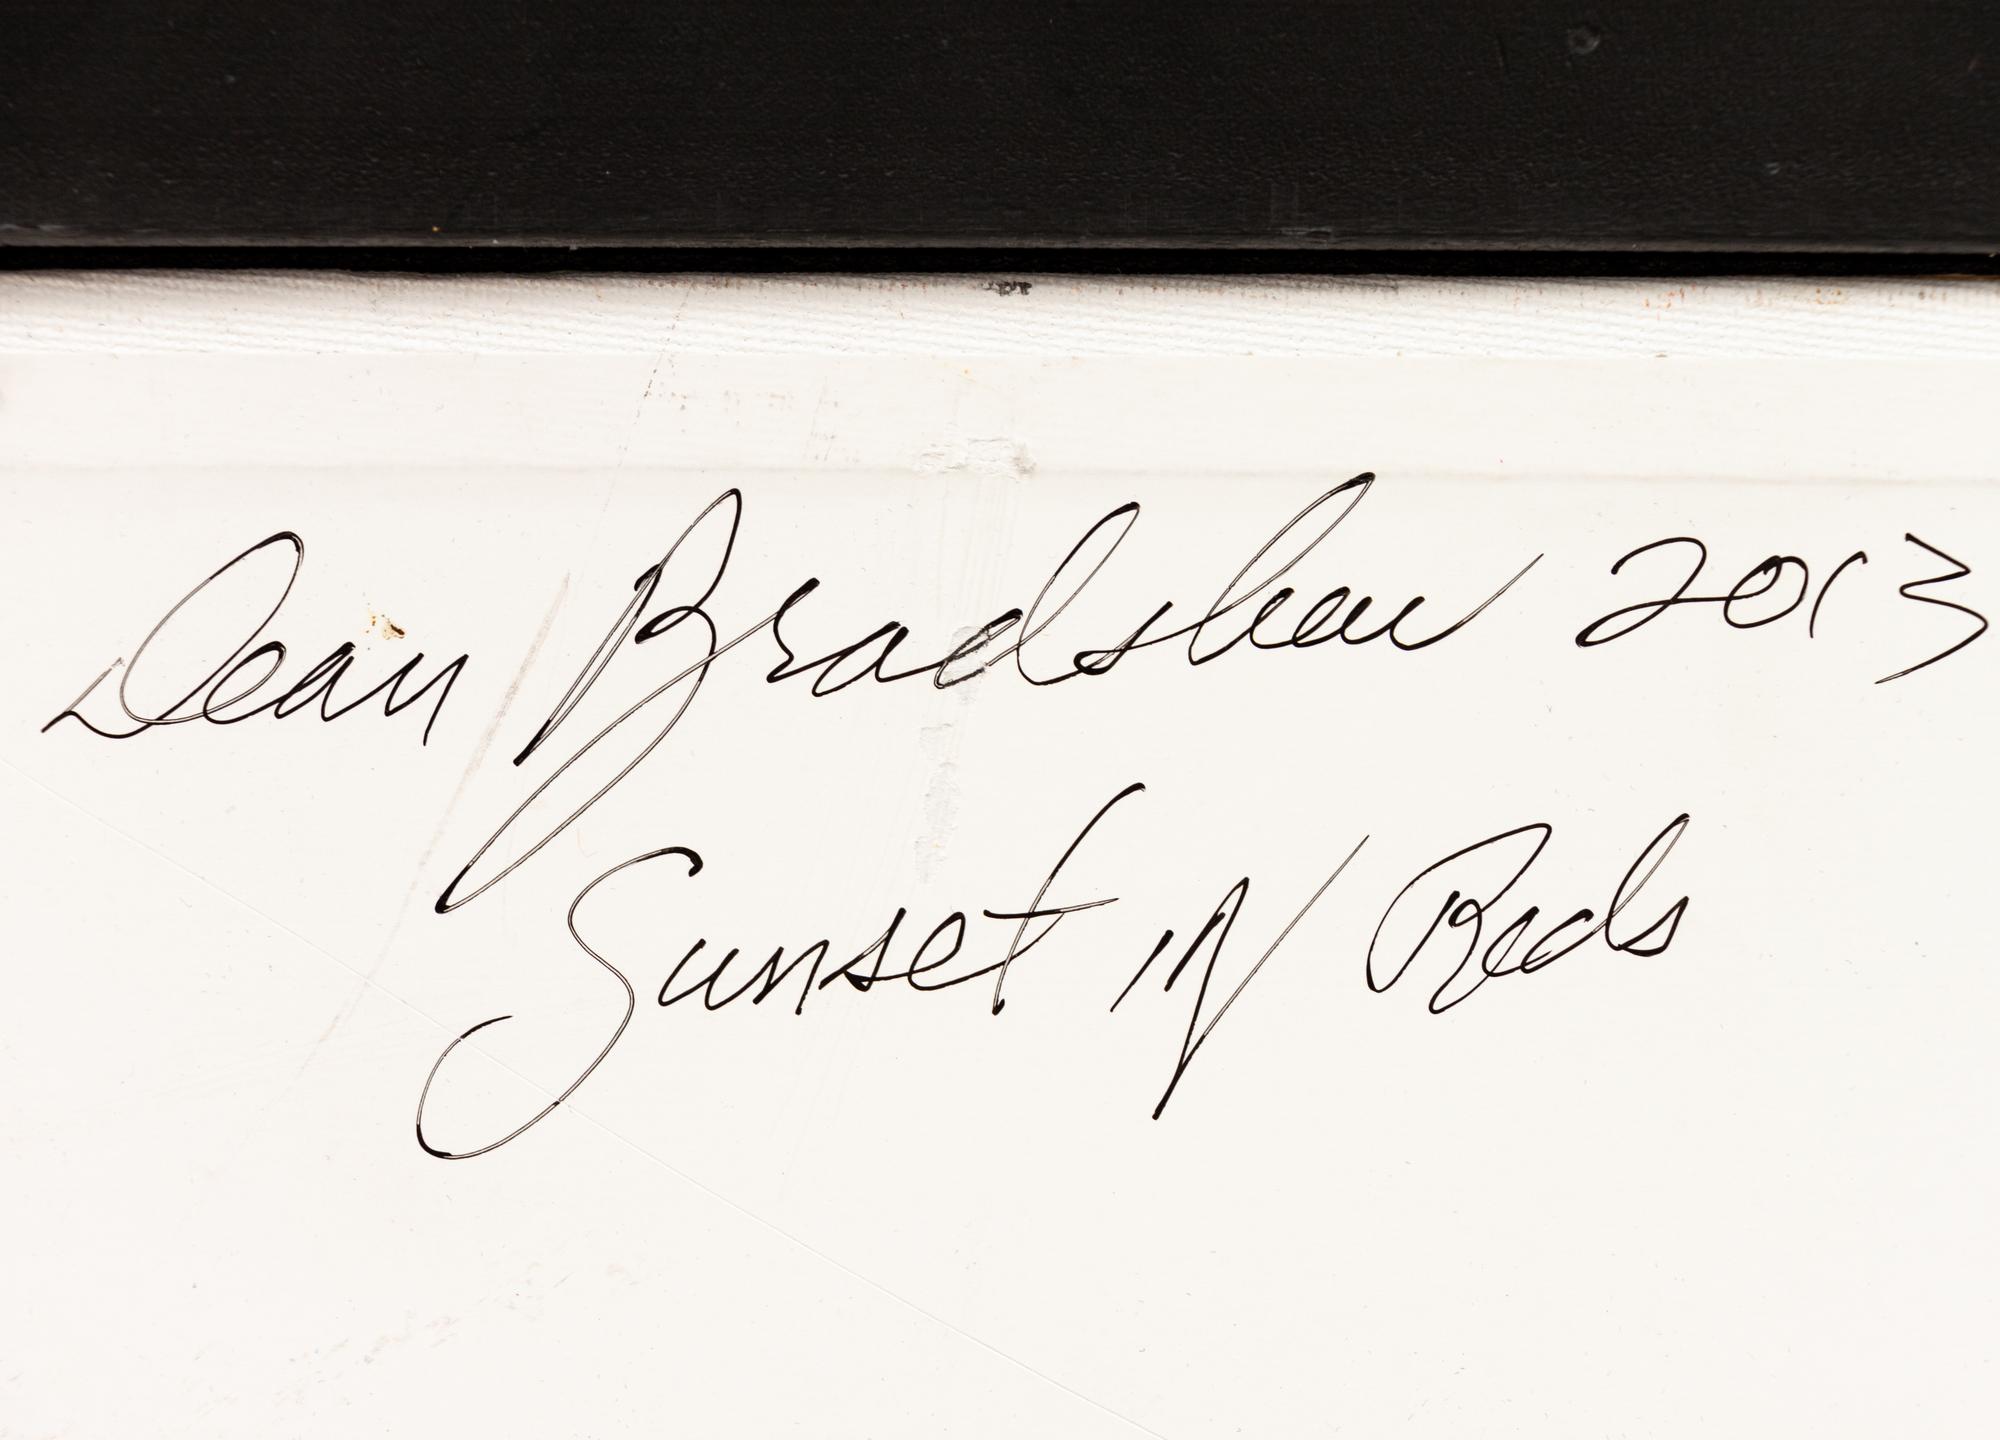 Dean Bradshaw 2013
Sunset IN Reds